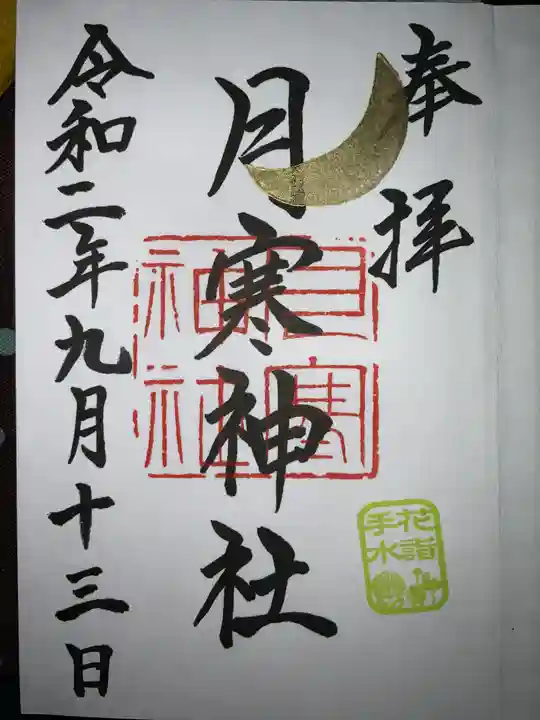 奉拝
月寒神社
月寒
神社
令和二年九月十三日
花詣
手水